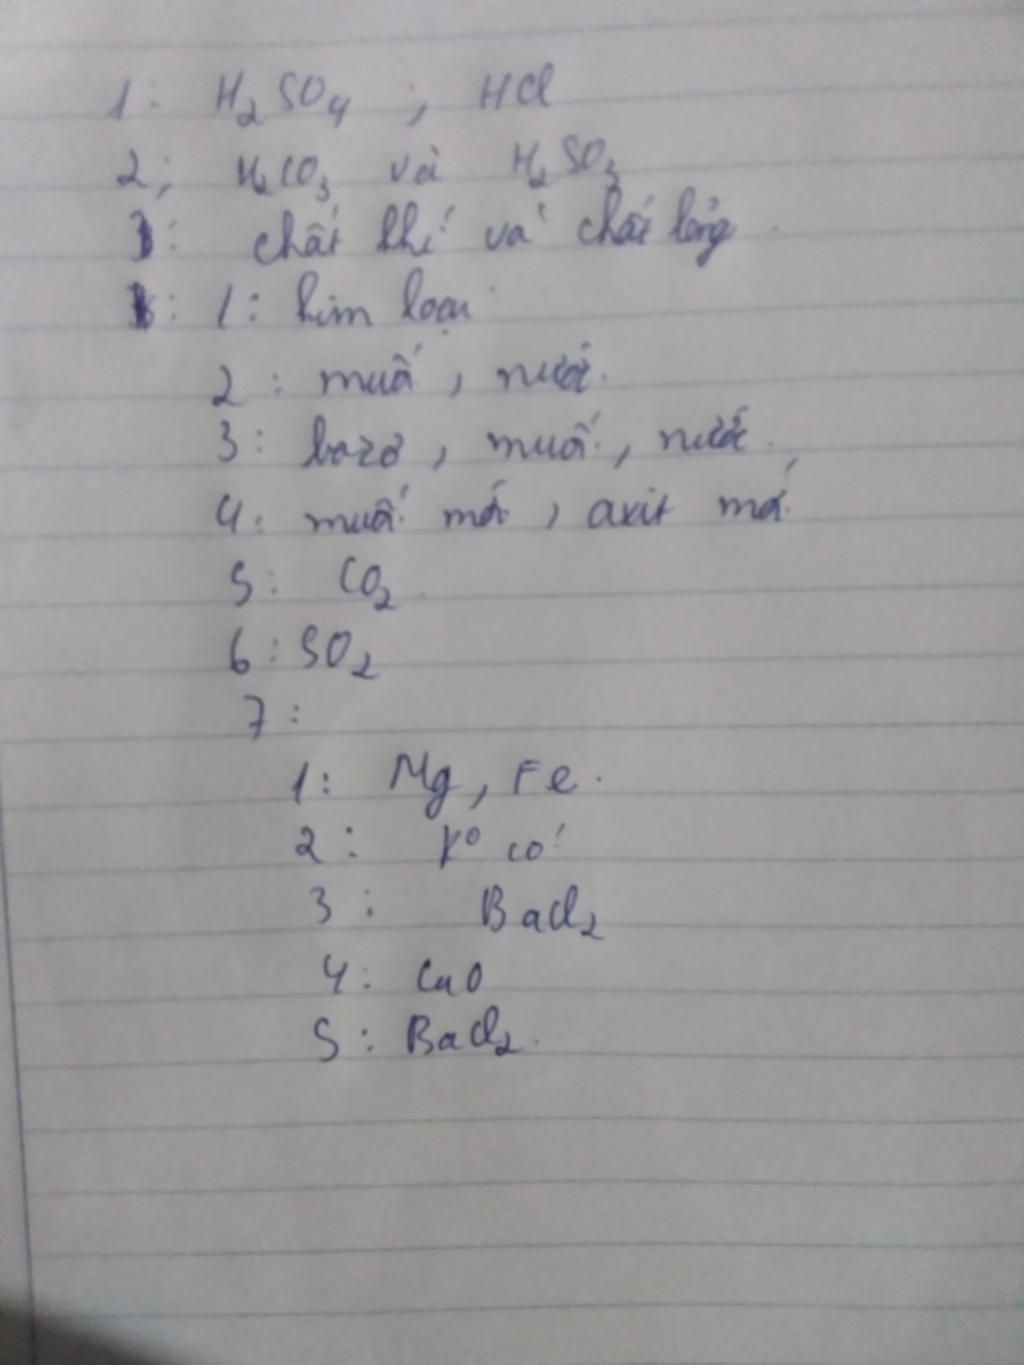 1: H₂SO₄ ; HCl
2; H₂CO₃ và H₂SO₃
3: chất khí và chất lỏng.
1: kim loại
2: muối, nước.
3: bazơ, muối, nước.
4: muối mới, axit mới
5: CO₂.
6: SO₂
7:
1: Mg, Fe.
2: K° có
3: BaCl₂
4: CuO
5: BaCl₂.